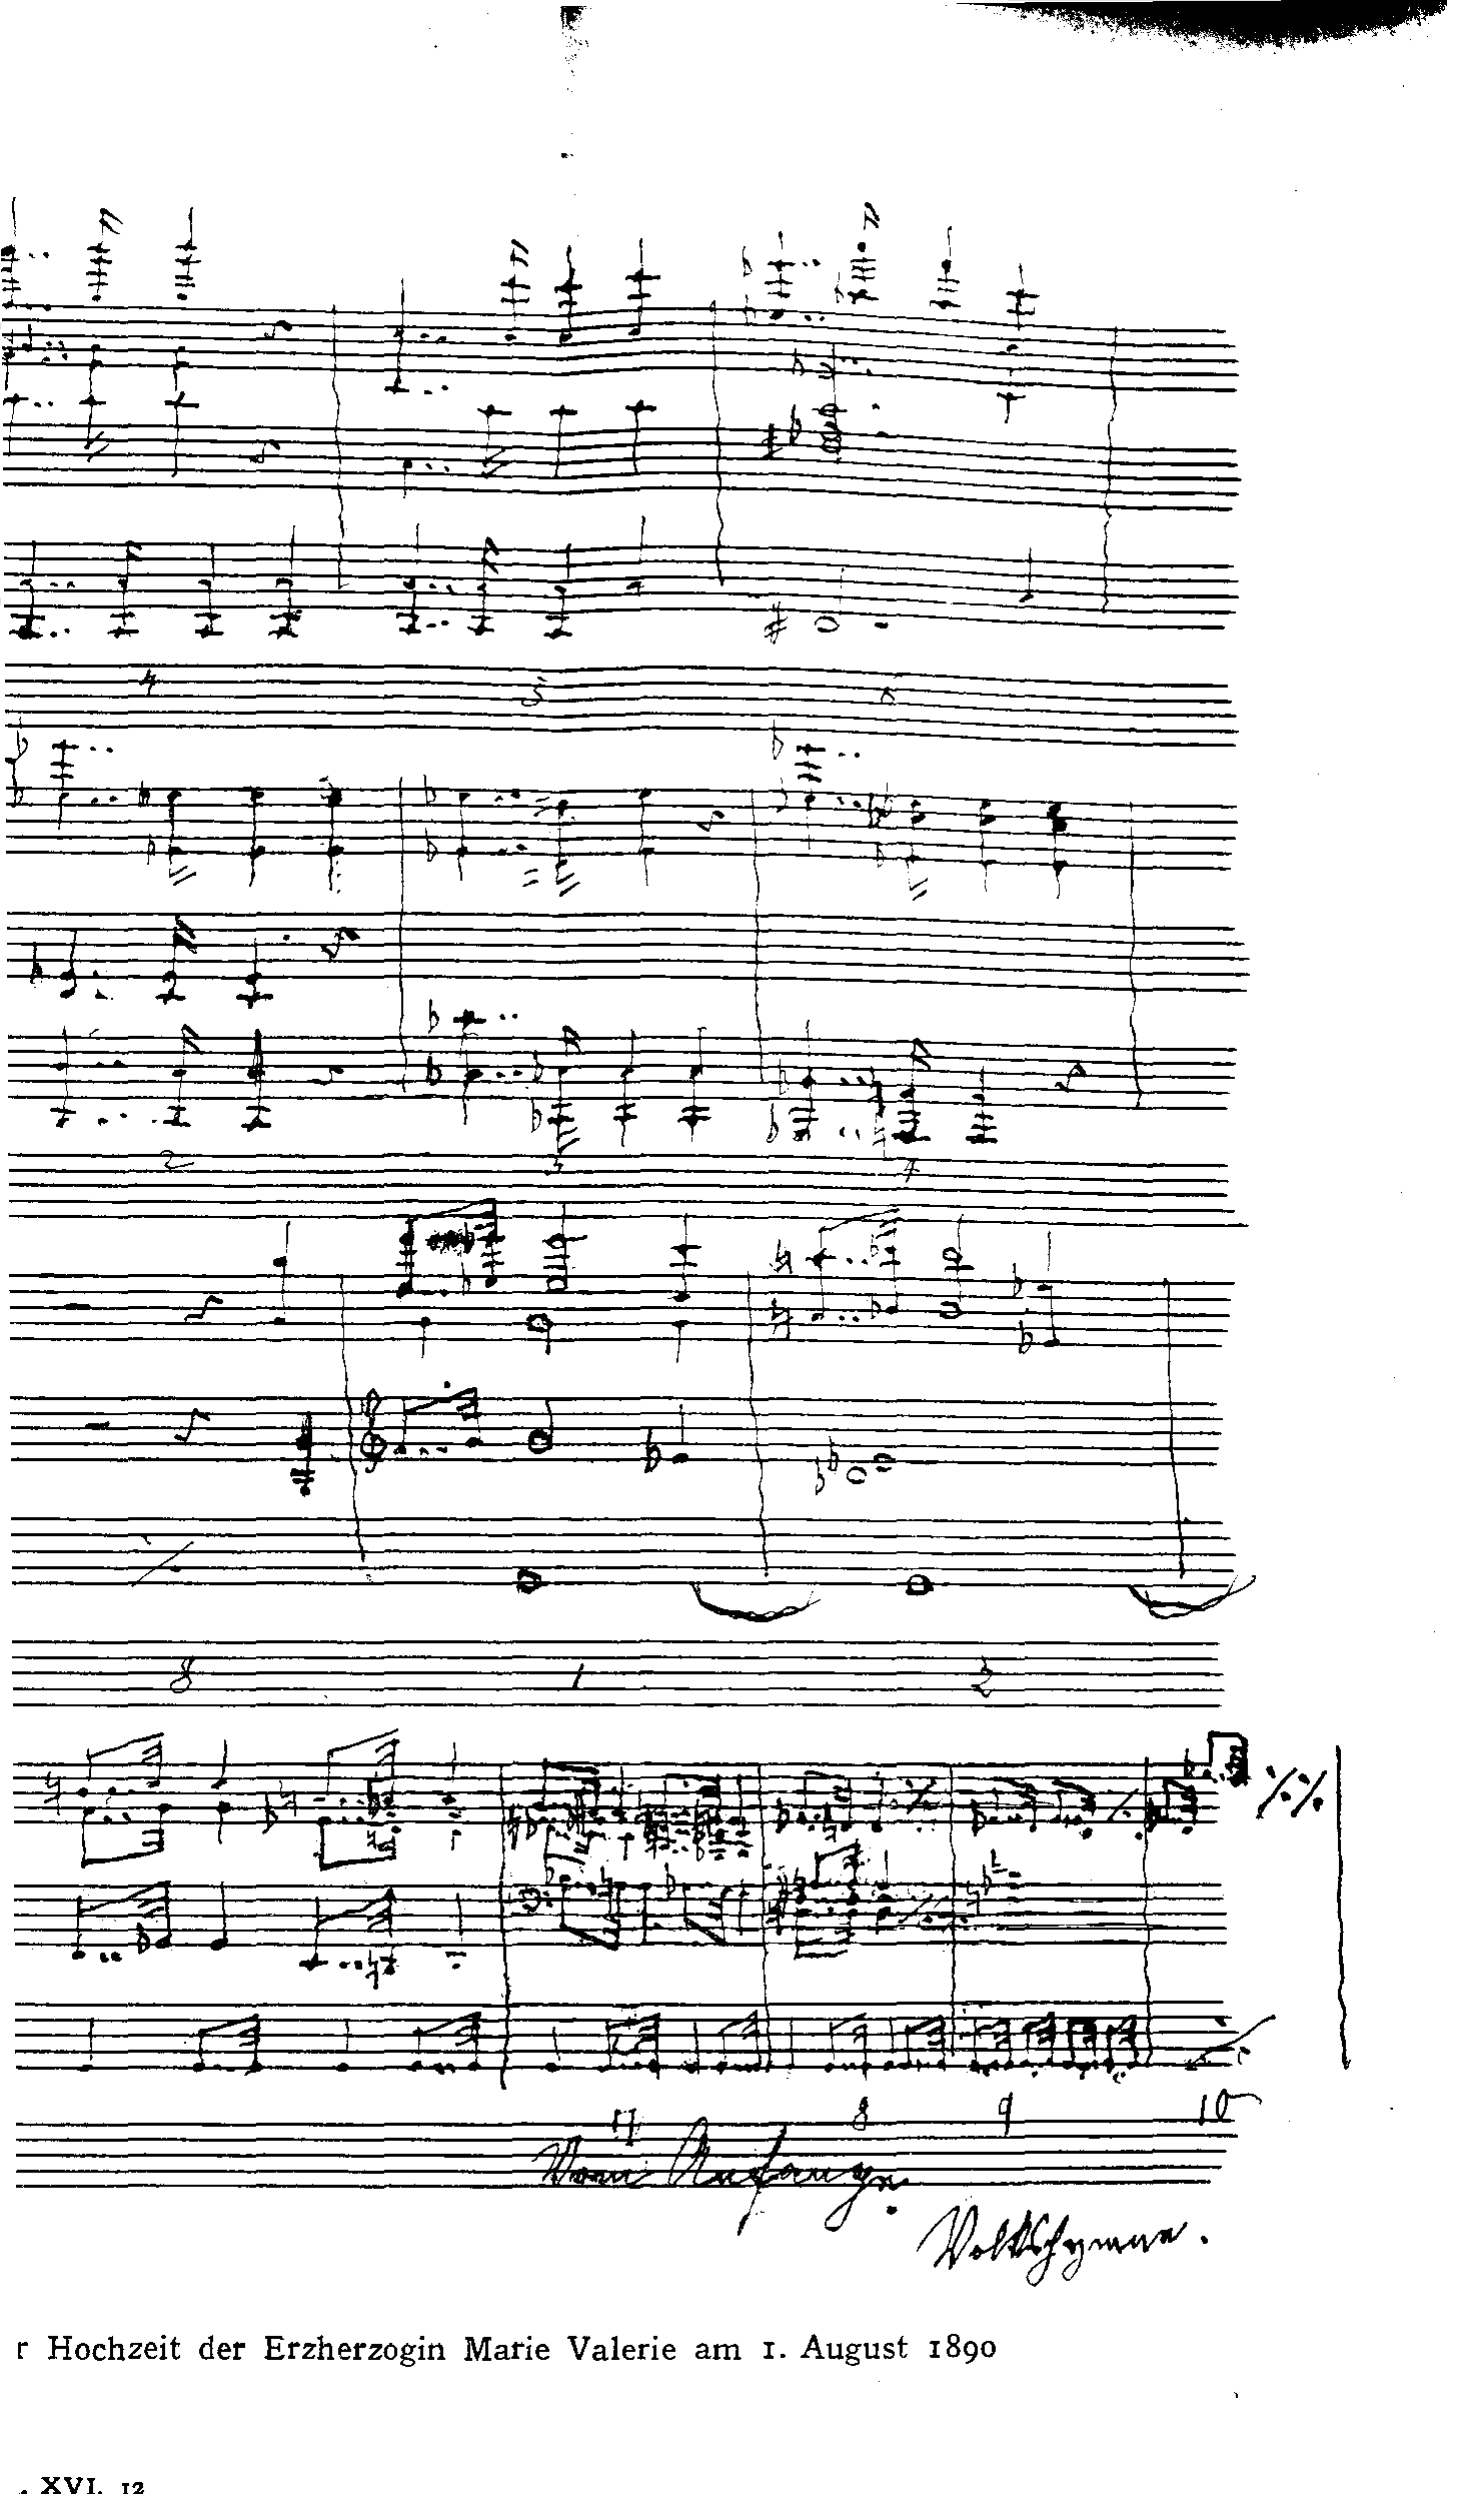 4 5 6
2 3 4
8 1 2
7 8 9 10
Vom Anfange.
Volkshymne.
r Hochzeit der Erzherzogin Marie Valerie am 1. August 1890
. XVI. 12